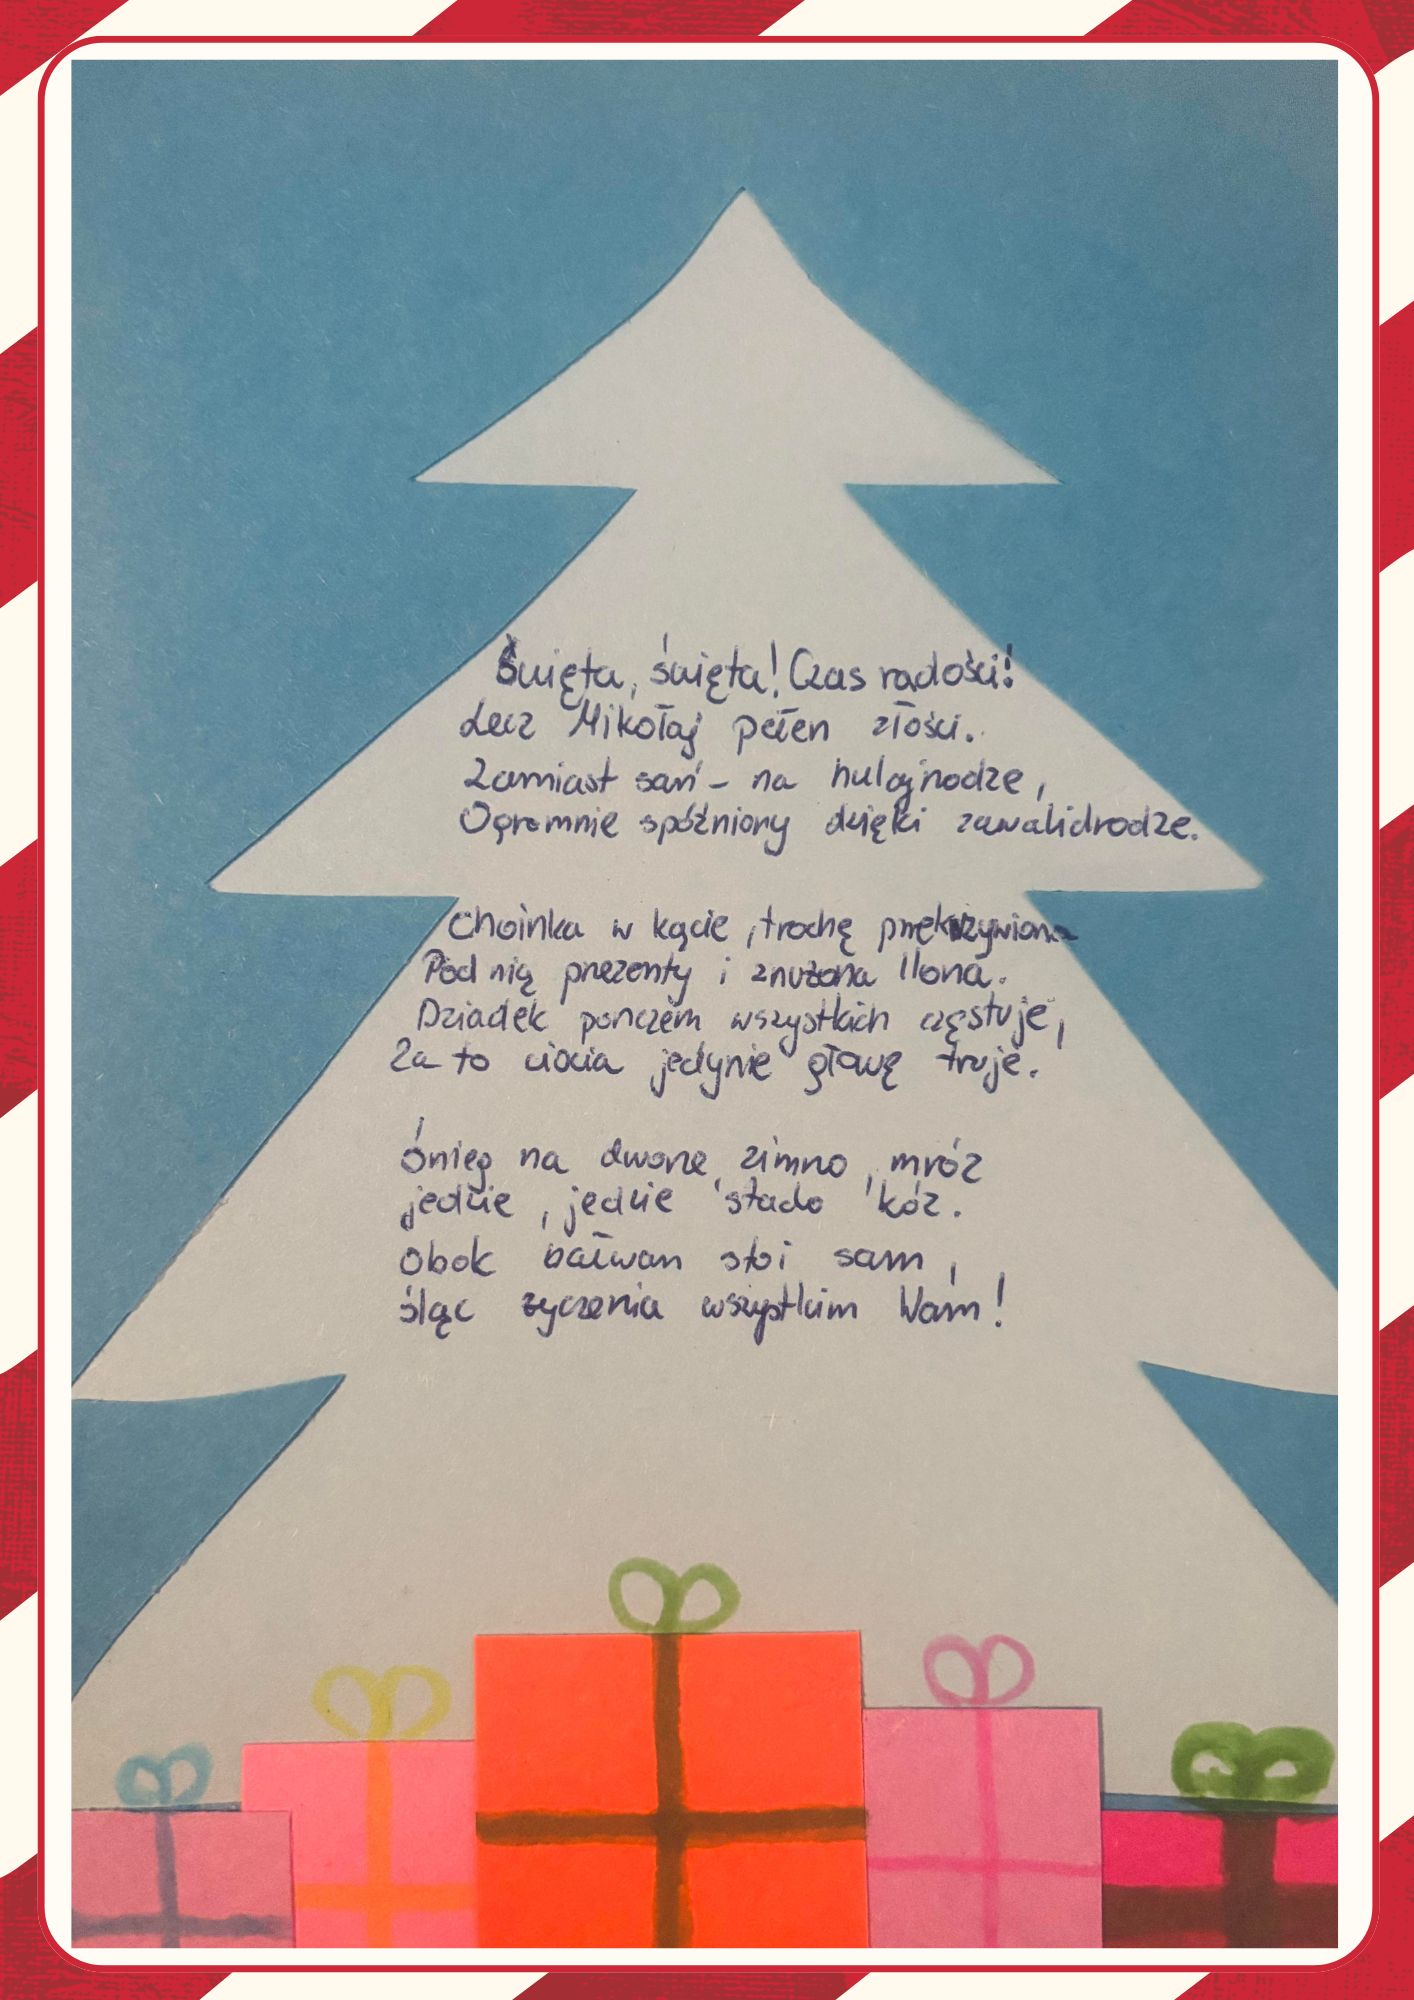 Święta, święta! Czas radości!
Lecz Mikołaj pełen złości.
Zamiast sań – na hulajnodze,
Ogromnie spóźniony dzięki zawalidrodze.
Choinka w kącie, trochę przekrzywiona
Pod nią prezenty i znużona Ilona.
Dziadek ponczem wszystkich częstuje,
Za to ciocia jedynie głowę truje.
Śnieg na dworze, zimno, mróz
jedzie, jedzie stado kóz.
Obok bałwan stoi sam,
śląc życzenia wszystkim Wam!